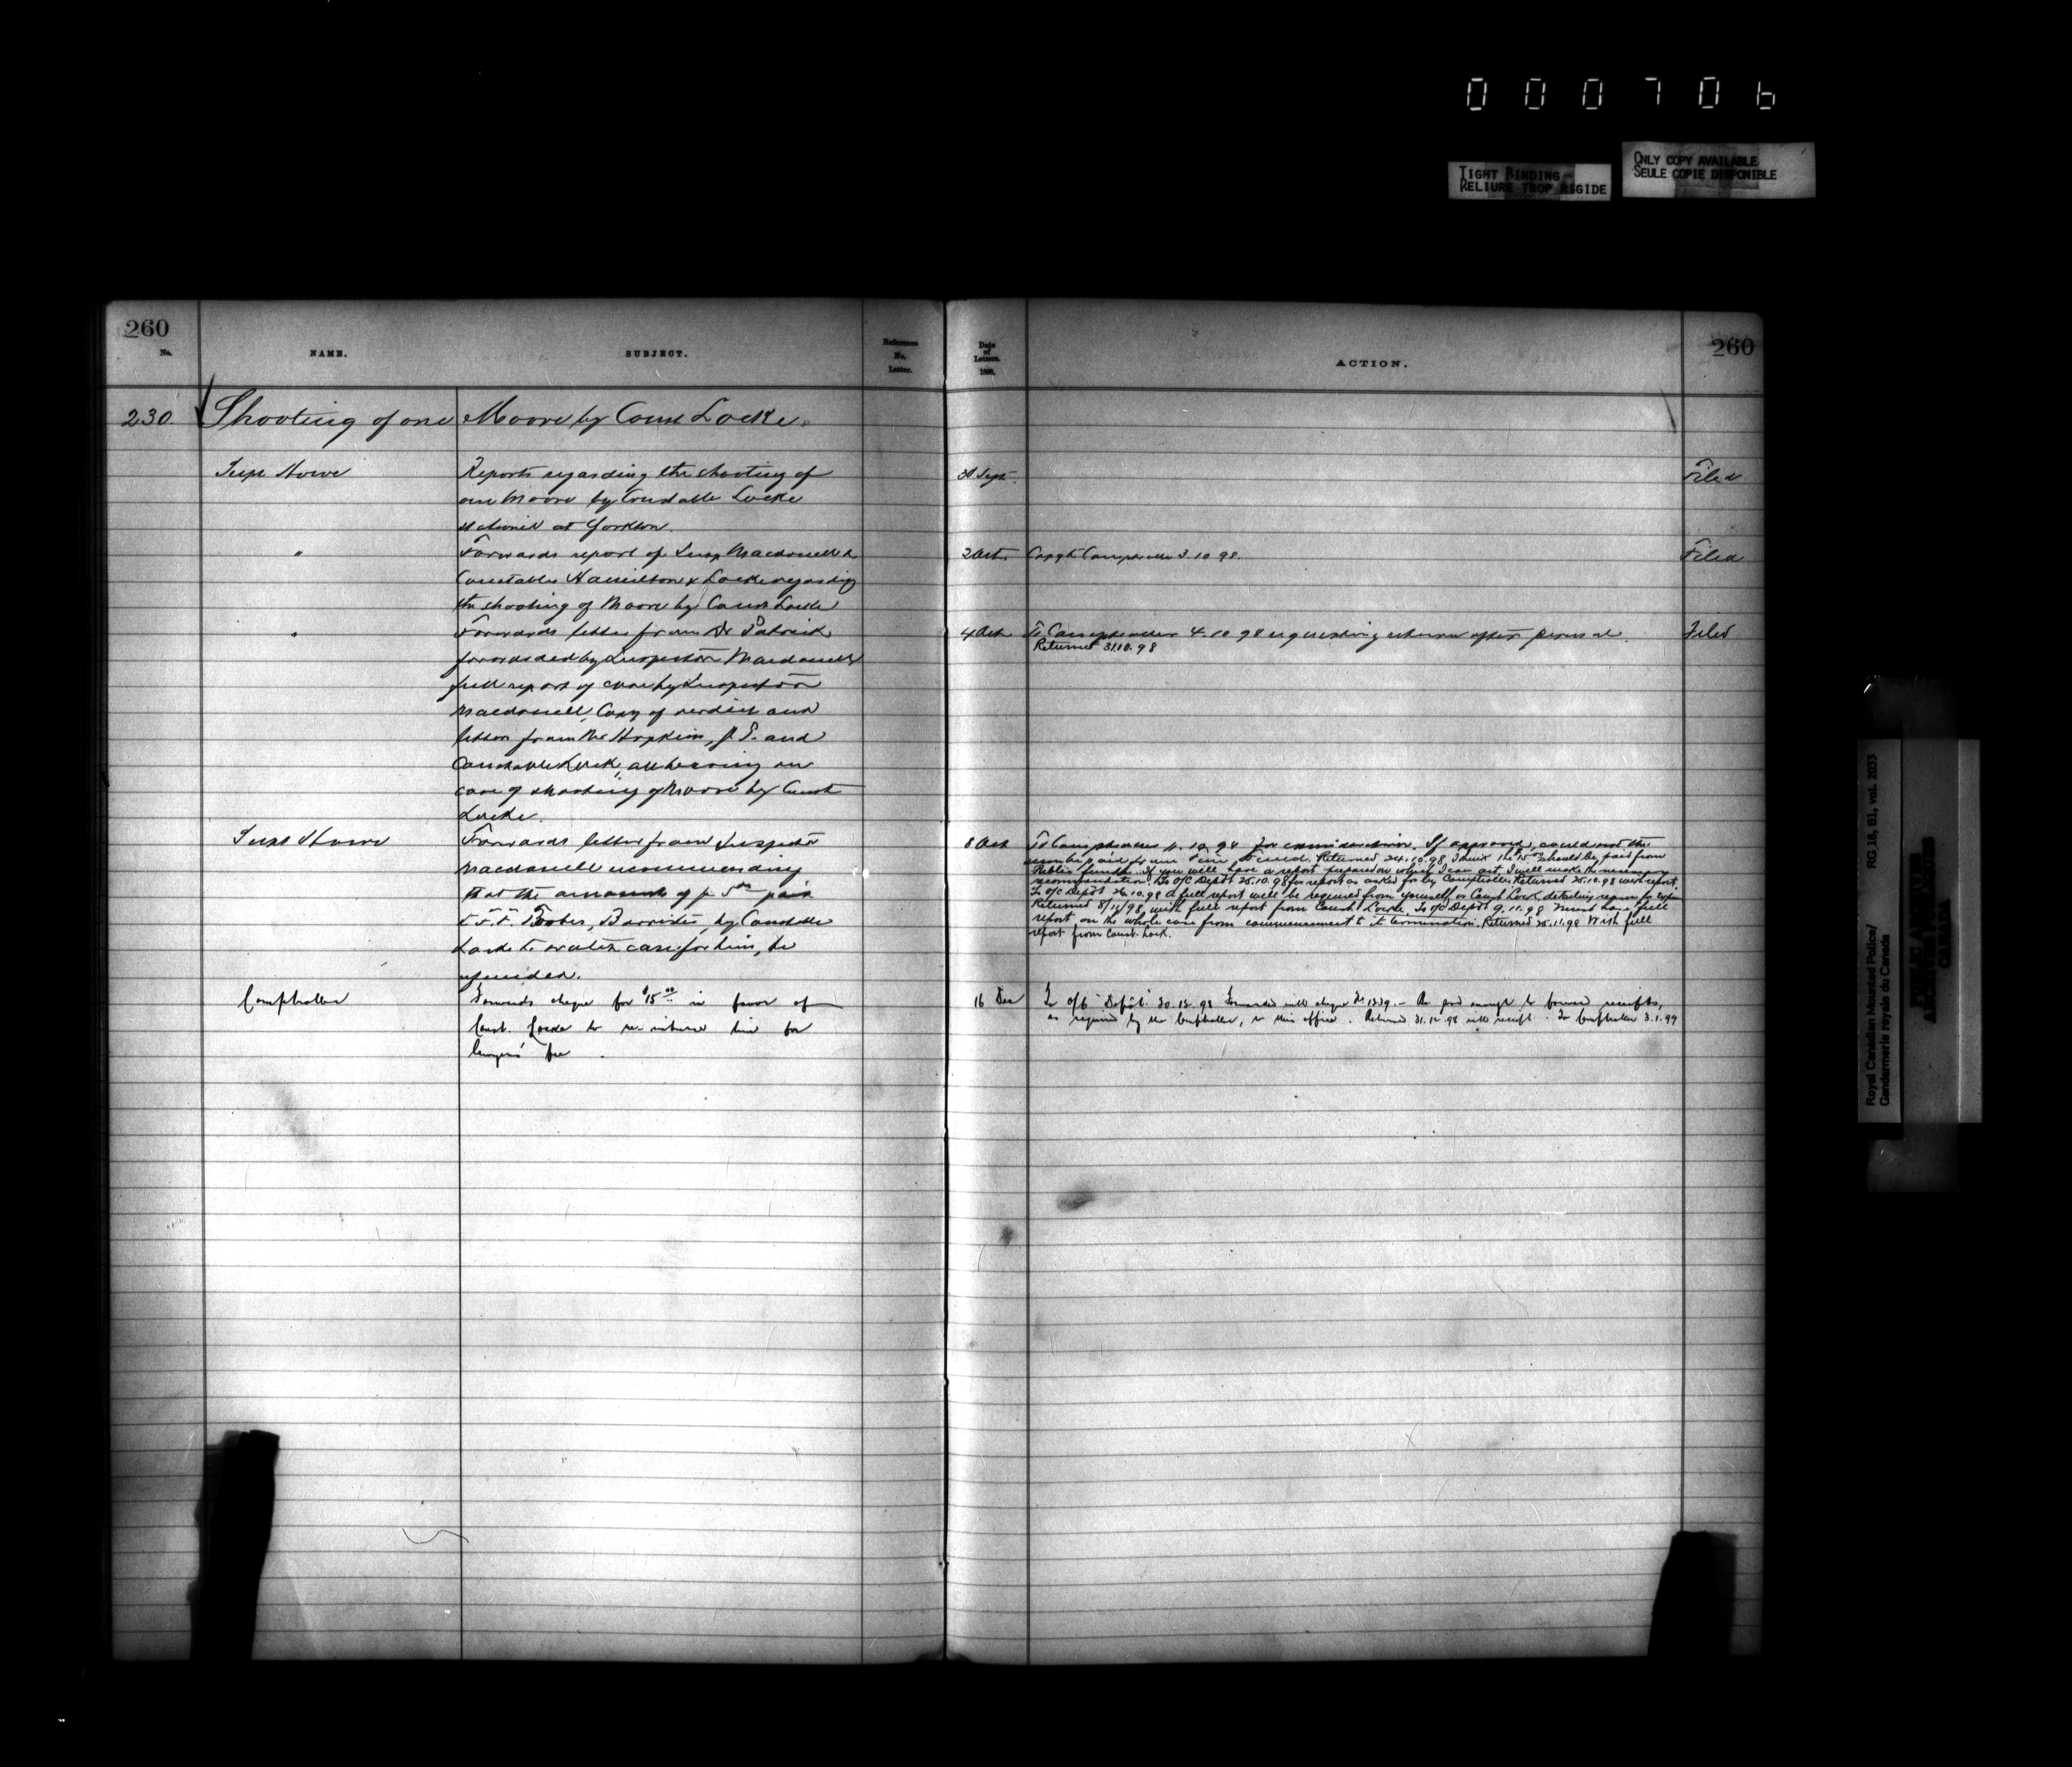 000706
TIGHT BINDING
RELIURE TROP RIGIDE
ONLY COPY AVAILABLE
SEULE COPIE DISPONIBLE
260
No.
NAME.
SUBJECT.
Reference
No.
Letter.
Date
of
Letters.
1898.
ACTION.
260
230 Shooting of one Moore by Const Locke.
Supt Howe
Reports regarding the shooting of
one Moore by Constable Locke
stationed at Yorkton.
30 Sept.
Filed
"
Forwards report of Insp Macdonell &
Constables Hamilton & Locke regarding
the shooting of Moore by Const Locke
2 Oct
Copy to Comptroller 3.10.98.
Filed
"
Forwards letter from Dr Patrick
forwarded by Inspector Macdonell
full report of case by Inspector
Macdonell, Copy of verdict and
letter from Mr Hopkins, J.P. and
Constable Lock, all bearing on
case of shooting of Moore by Const
Locke.
4 Oct
To Comptroller 4.10.98 requesting return after perusal.
Returned 31.10.98
Filed
Supt Howe
Forwards letter from Inspector
Macdonell recommending
that the amount of paid
Barrister, by Constable
Locke to watch case for him, be
refunded.
8 Oct
To Comptroller for consideration. If approved, could not this
be paid from Fine Fund. Returned 24.10.98 I think the 15 should be paid from
Public funds. If you will have a report prepared on which I can act, I will make the necessary
recommendation. To O/C Depôt 25.10.98 for report as asked for by Comptroller. Returned 25.10.98 with report.
To O/C Depôt 26.10.98 A full report will be required from yourself or Const Lock, detailing
Returned 8/11/98 with full report from Const Locke. To O/C Depôt 9.11.98 Must have full
report on the whole case from commencement to its termination. Returned 25.11.98 With full
report from Const. Lock.
Comptroller
Forwards cheque for $15 00 in favor of
Const. Locke to re-imburse him for
lawyers' fee.
16 Dec
To O/C "Depôt" 20.12.98 Forwarded with cheque No 1239. – Be good enough to forward receipts,
as required by the Comptroller, to this office. Returned 31.12.98 with receipt. To Comptroller 3.1.99
Royal Canadian Mounted Police/
Gendarmerie royale du Canada
RG 18, B1, vol. 2033
PUBLIC ARCHIVES
ARCHIVES PUBLIQUES
CANADA